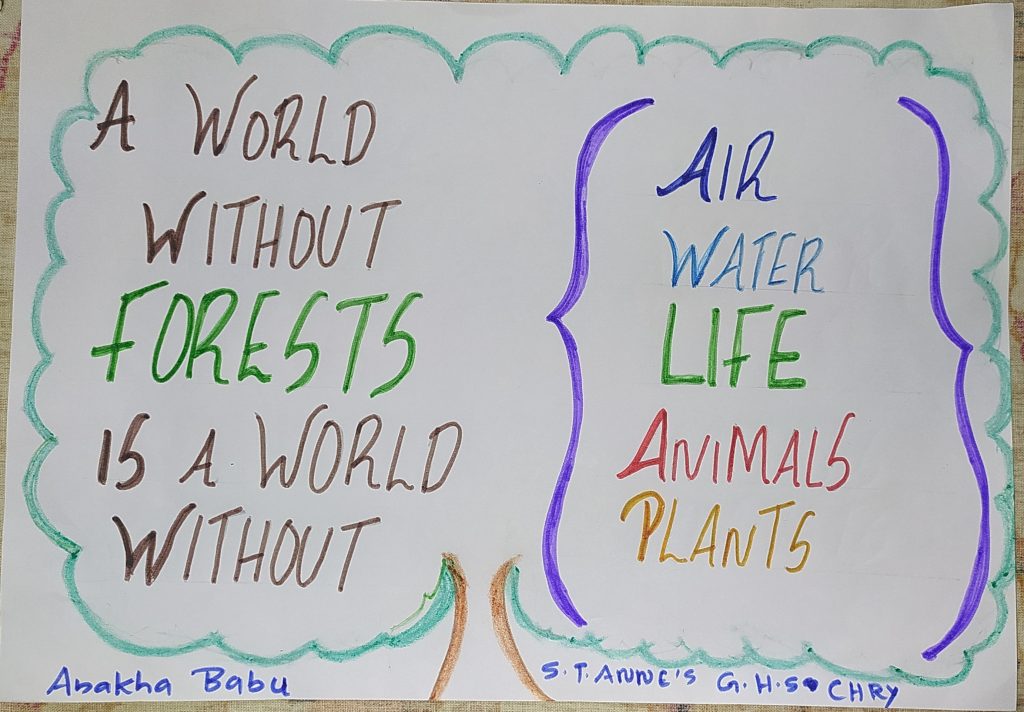 A WORLD
WITHOUT
FORESTS
IS A WORLD
WITHOUT
AIR
WATER
LIFE
ANIMALS
PLANTS
Anakha Babu
S.T. ANNE'S G.H.S. CHRY